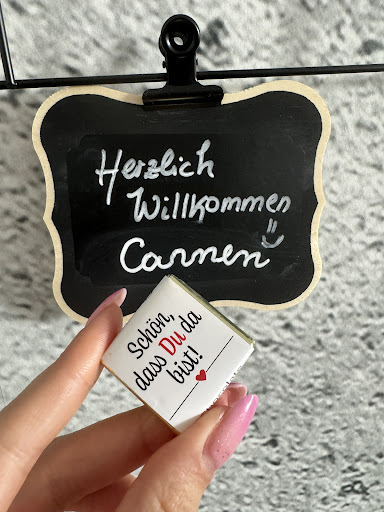 Herzlich
Willkommen
Carmen
Schön,
dass Du da
bist!